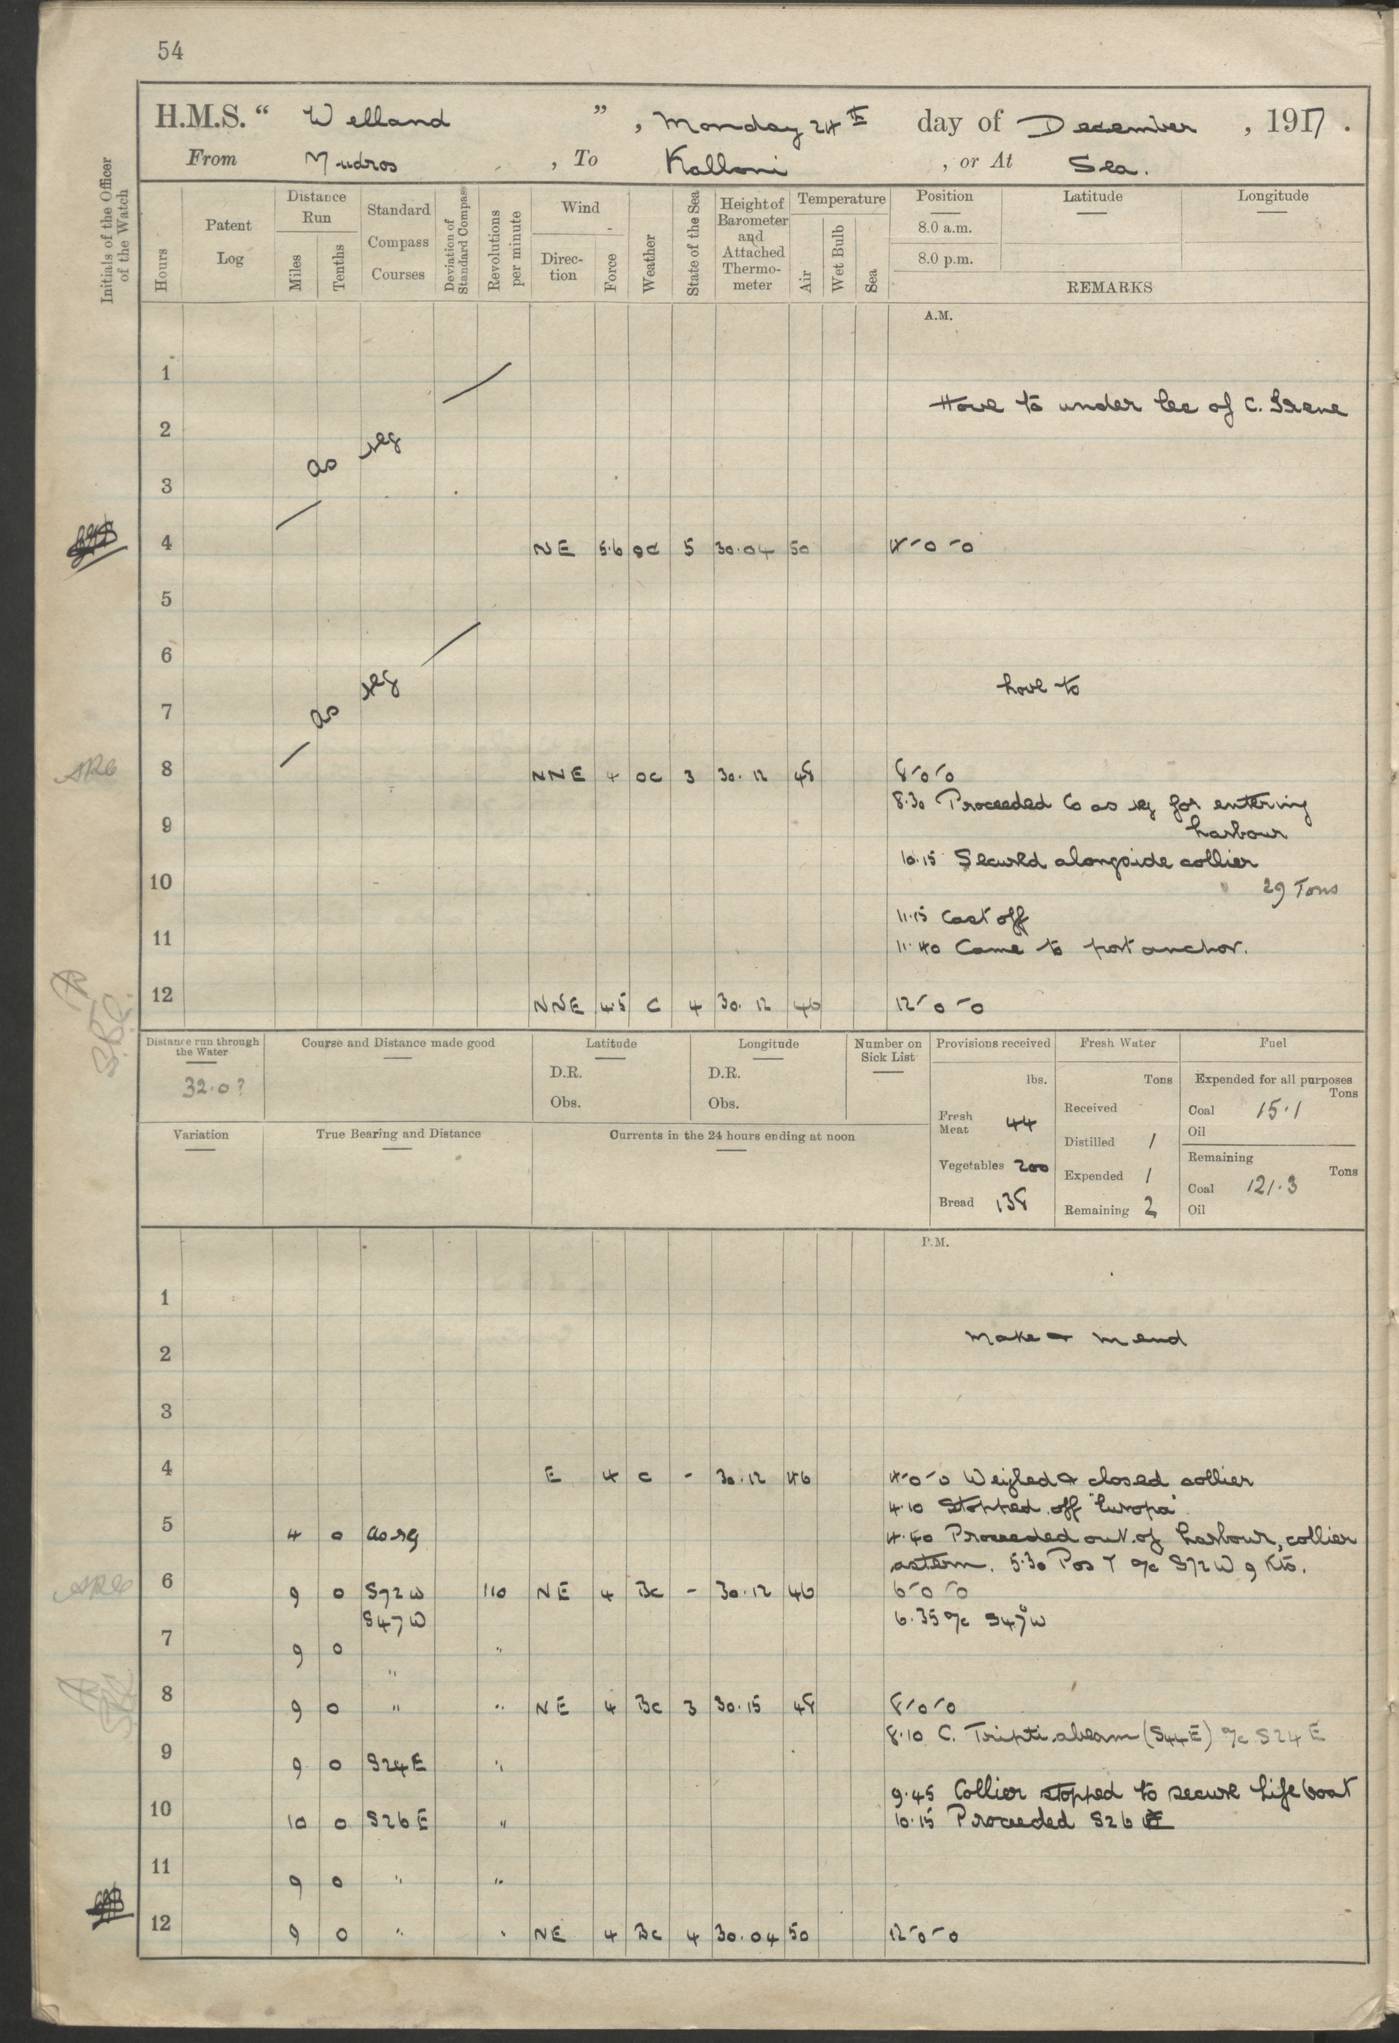 54
H.M.S. “ Welland ” , Monday 24th day of December , 1917 .
From Mudros , To Kalloni , or At Sea.
Initials of the Officer of the Watch
Hours
Patent Log
Distance Run
Miles
Tenths
Standard Compass Courses
Deviation of Standard Compass
Revolutions per minute
Wind
Direction
Force
Weather
State of the Sea
Height of Barometer and Attached Thermometer
Temperature
Air
Wet Bulb
Sea
Position
8.0 a.m.
8.0 p.m.
Latitude
Longitude
REMARKS
A.M.
1
Hove to under lee of C. Irene
2
as req
3
4 NE 5.6 oc 5 30.04 50 4-0-0
5
6
as req
hove to
7
8 NNE 4 oc 3 30.12 48 8-0-0
8.30 Proceeded Co as req for entering
9
harbour
10.15 Secured alongside collier
10
29 Tons
11.15 Cast off
11
11.40 Came to port anchor.
12 NNE 4.5 c 4 30.12 46 12-0-0
Distance run through the Water
32.0?
Course and Distance made good
Latitude
D.R.
Obs.
Longitude
D.R.
Obs.
Number on Sick List
Provisions received
lbs.
Fresh Meat 44
Vegetables 200
Bread 138
Fresh Water
Tons
Received
Distilled 1
Expended 1
Remaining 2
Fuel
Expended for all purposes
Tons
Coal 15.1
Oil
Remaining
Tons
Coal 121.3
Oil
Variation
True Bearing and Distance
Currents in the 24 hours ending at noon
P.M.
1
Make & mend
2
3
4 E 4 c - 30.12 46 4-0-0 Weighed & closed collier
4.10 Stopped off "Europa"
5 4 0 as rq 4.40 Proceeded out of harbour, collier
astern. 5.30 Pos T a/c S72W 9 Kts.
6 9 0 S72W 110 NE 4 Bc - 30.12 46 6-0-0
S47W 6.35 a/c S47°W
7 9 0 " "
8 9 0 " " NE 4 Bc 3 30.15 48 8-0-0
8.10 C. Tripti abeam (S44E) a/c S24E
9 9 0 S24E "
9.45 Collier stopped to secure lifeboat
10 10 0 S26E " 10.15 Proceeded S26E
11 9 0 " "
12 9 0 " " NE 4 Bc 4 30.04 50 12-0-0